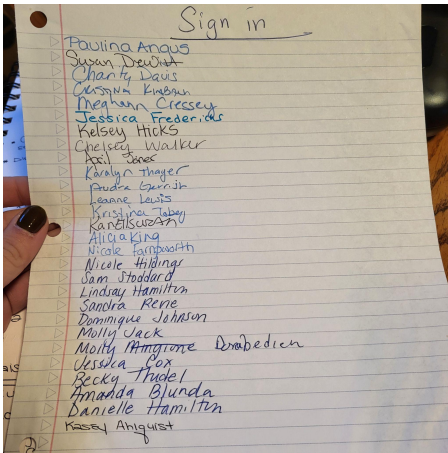 Sign in
Paulina Angus
Susan Drewint
Charity Davis
Kimbran
Meghann Cressey
Jessica Fredericks
Kelsey Hicks
Chelsey Walker
April Jones
Karolyn Thayer
Audra Gerrish
Leanne Lewis
Kristina Tobey
Alicia King
Nicole Farnsworth
Nicole Hildings
Sam Stoddard
Lindsay Hamilton
Sandra Rene
Dominique Johnson
Molly Jack
Molly Mingione Derabedien
Jessica Cox
Becky Thudel
Amanda Blunda
Danielle Hamilton
Kasey Ahlquist